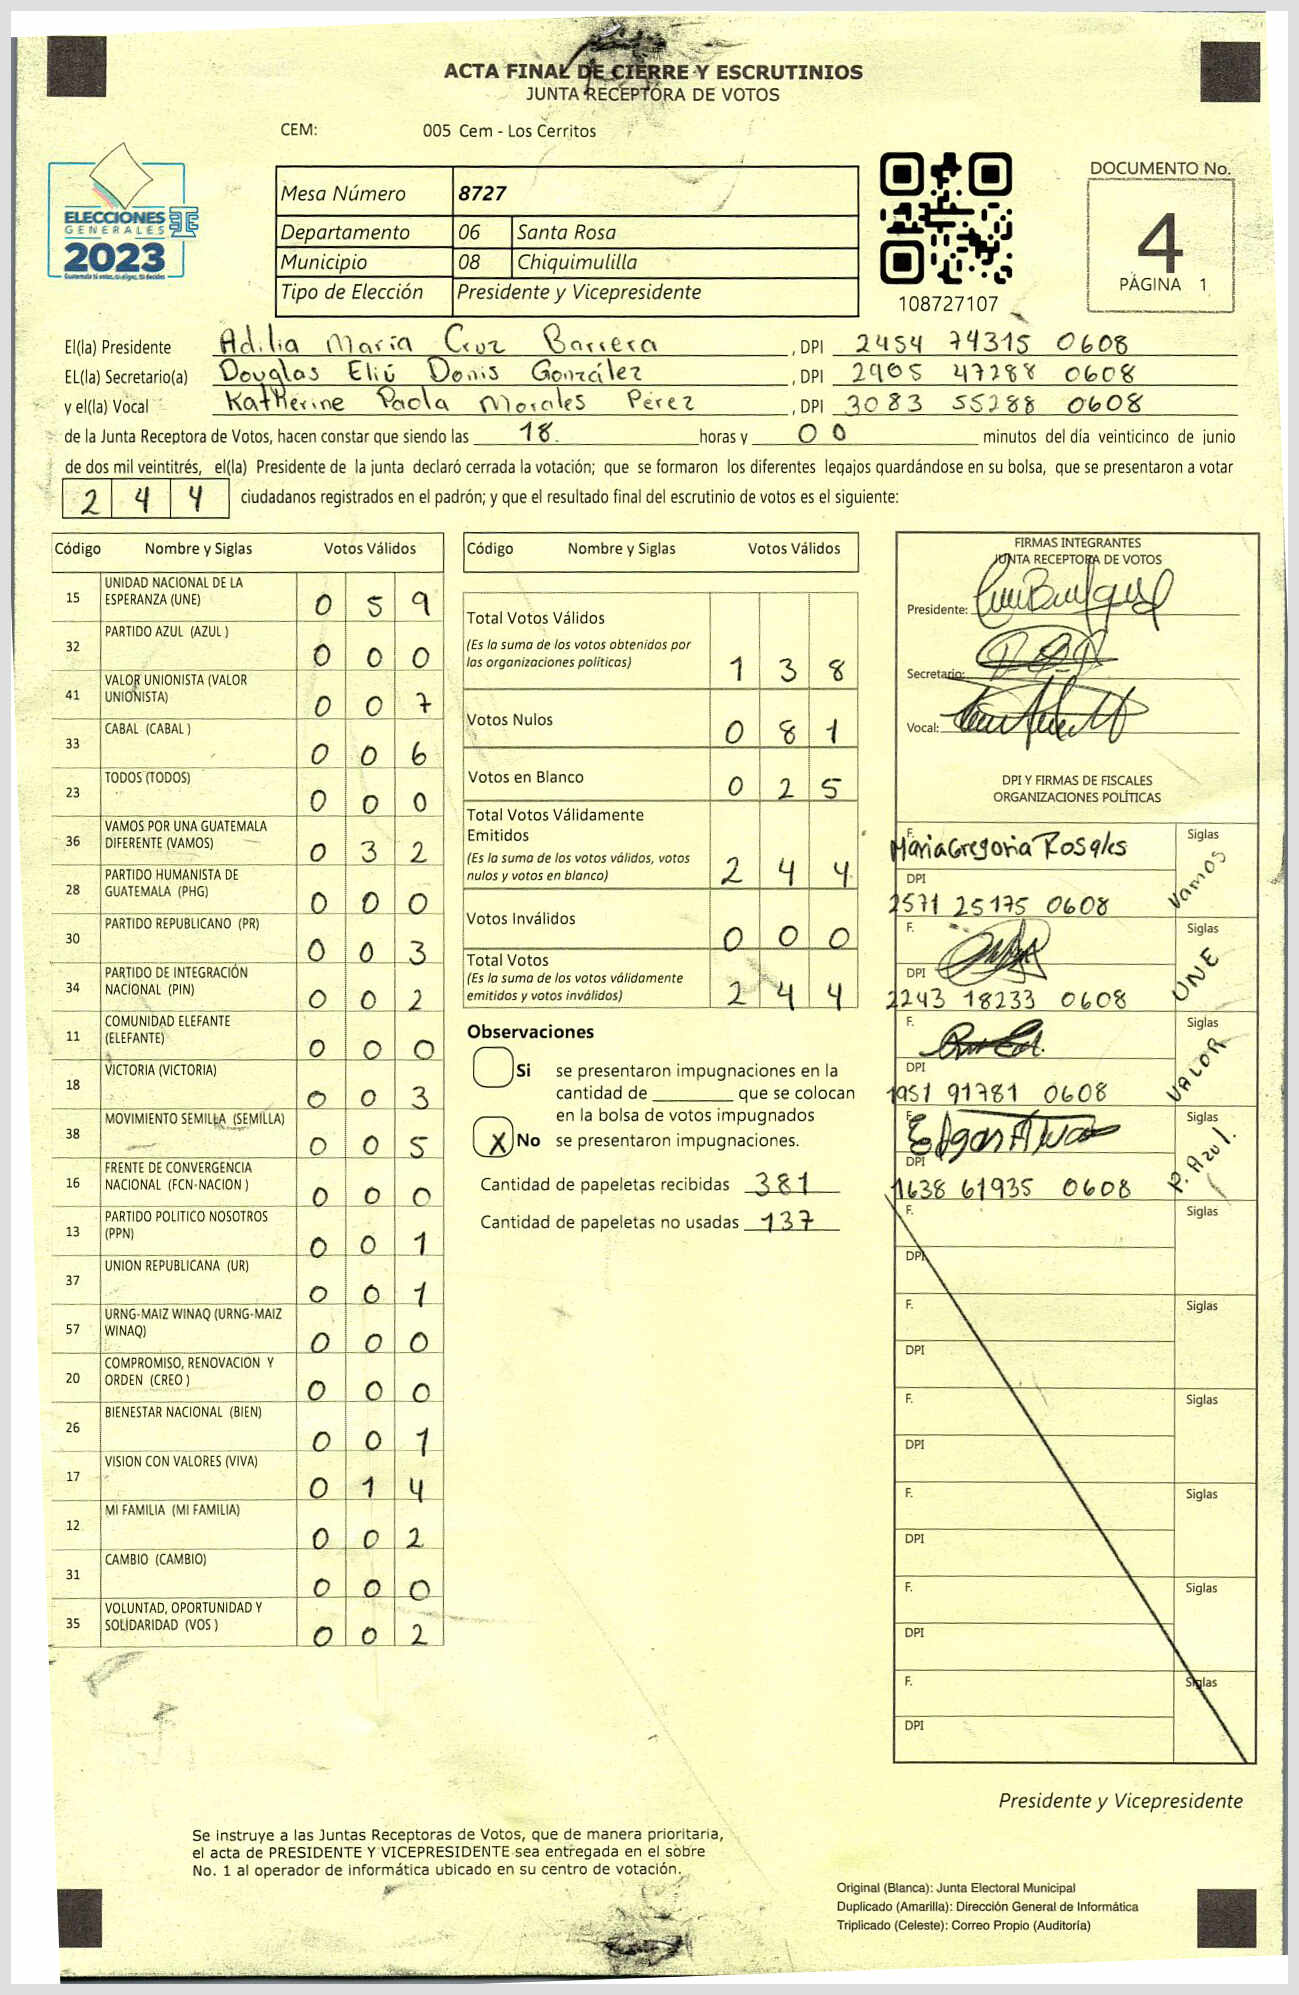 ACTA FINAL DE CIERRE Y ESCRUTINIOS
JUNTA RECEPTORA DE VOTOS
CEM: 005 Cem - Los Cerritos
ELECCIONES
GENERALES
2023
Mesa Número 8727
Departamento 06 Santa Rosa
Municipio 08 Chiquimulilla
Tipo de Elección Presidente y Vicepresidente
108727107
DOCUMENTO No.
4
PÁGINA 1
El(la) Presidente Adilia María Cruz Barrera , DPI 2454 74315 0608
EL(la) Secretario(a) Douglas Eliú Donis González , DPI 2905 47288 0608
y el(la) Vocal Katherine Paola Morales Pérez , DPI 3083 55288 0608
de la Junta Receptora de Votos, hacen constar que siendo las 18. horas y 00 minutos del día veinticinco de junio
de dos mil veintitrés, el(la) Presidente de la junta declaró cerrada la votación; que se formaron los diferentes legajos guardándose en su bolsa, que se presentaron a votar
244 ciudadanos registrados en el padrón; y que el resultado final del escrutinio de votos es el siguiente:
Código Nombre y Siglas Votos Válidos
15 UNIDAD NACIONAL DE LA ESPERANZA (UNE) 0 5 9
32 PARTIDO AZUL (AZUL ) 0 0 0
41 VALOR UNIONISTA (VALOR UNIONISTA) 0 0 7
33 CABAL (CABAL ) 0 0 6
23 TODOS (TODOS) 0 0 0
36 VAMOS POR UNA GUATEMALA DIFERENTE (VAMOS) 0 3 2
28 PARTIDO HUMANISTA DE GUATEMALA (PHG) 0 0 0
30 PARTIDO REPUBLICANO (PR) 0 0 3
34 PARTIDO DE INTEGRACIÓN NACIONAL (PIN) 0 0 2
11 COMUNIDAD ELEFANTE (ELEFANTE) 0 0 0
18 VICTORIA (VICTORIA) 0 0 3
38 MOVIMIENTO SEMILLA (SEMILLA) 0 0 5
16 FRENTE DE CONVERGENCIA NACIONAL (FCN-NACION ) 0 0 0
13 PARTIDO POLITICO NOSOTROS (PPN) 0 0 1
37 UNION REPUBLICANA (UR) 0 0 1
57 URNG-MAIZ WINAQ (URNG-MAIZ WINAQ) 0 0 0
20 COMPROMISO, RENOVACION Y ORDEN (CREO ) 0 0 0
26 BIENESTAR NACIONAL (BIEN) 0 0 1
17 VISION CON VALORES (VIVA) 0 1 4
12 MI FAMILIA (MI FAMILIA) 0 0 2
31 CAMBIO (CAMBIO) 0 0 0
35 VOLUNTAD, OPORTUNIDAD Y SOLIDARIDAD (VOS ) 0 0 2
Código Nombre y Siglas Votos Válidos
Total Votos Válidos
(Es la suma de los votos obtenidos por
las organizaciones políticas) 1 3 8
Votos Nulos 0 8 1
Votos en Blanco 0 2 5
Total Votos Válidamente
Emitidos
(Es la suma de los votos válidos, votos
nulos y votos en blanco) 2 4 4
Votos Inválidos 0 0 0
Total Votos
(Es la suma de los votos válidamente
emitidos y votos inválidos) 2 4 4
Observaciones
Si se presentaron impugnaciones en la
cantidad de ________ que se colocan
en la bolsa de votos impugnados
X No se presentaron impugnaciones.
Cantidad de papeletas recibidas 381
Cantidad de papeletas no usadas 137
FIRMAS INTEGRANTES
JUNTA RECEPTORA DE VOTOS
Presidente:
Secretario:
Vocal:
DPI Y FIRMAS DE FISCALES
ORGANIZACIONES POLÍTICAS
F. Maria Gregoria Rosales Siglas Vamos
DPI 2571 25175 0608
F. Siglas UNE
DPI 2243 18233 0608
F. Siglas VALOR
DPI 1951 91781 0608
F. Siglas P. Azul.
DPI 1638 61935 0608
F. Siglas
DPI
F. Siglas
DPI
F. Siglas
DPI
F. Siglas
DPI
F. Siglas
DPI
F. Siglas
DPI
Presidente y Vicepresidente
Se instruye a las Juntas Receptoras de Votos, que de manera prioritaria,
el acta de PRESIDENTE Y VICEPRESIDENTE sea entregada en el sobre
No. 1 al operador de informática ubicado en su centro de votación.
Original (Blanca): Junta Electoral Municipal
Duplicado (Amarilla): Dirección General de Informática
Triplicado (Celeste): Correo Propio (Auditoría)